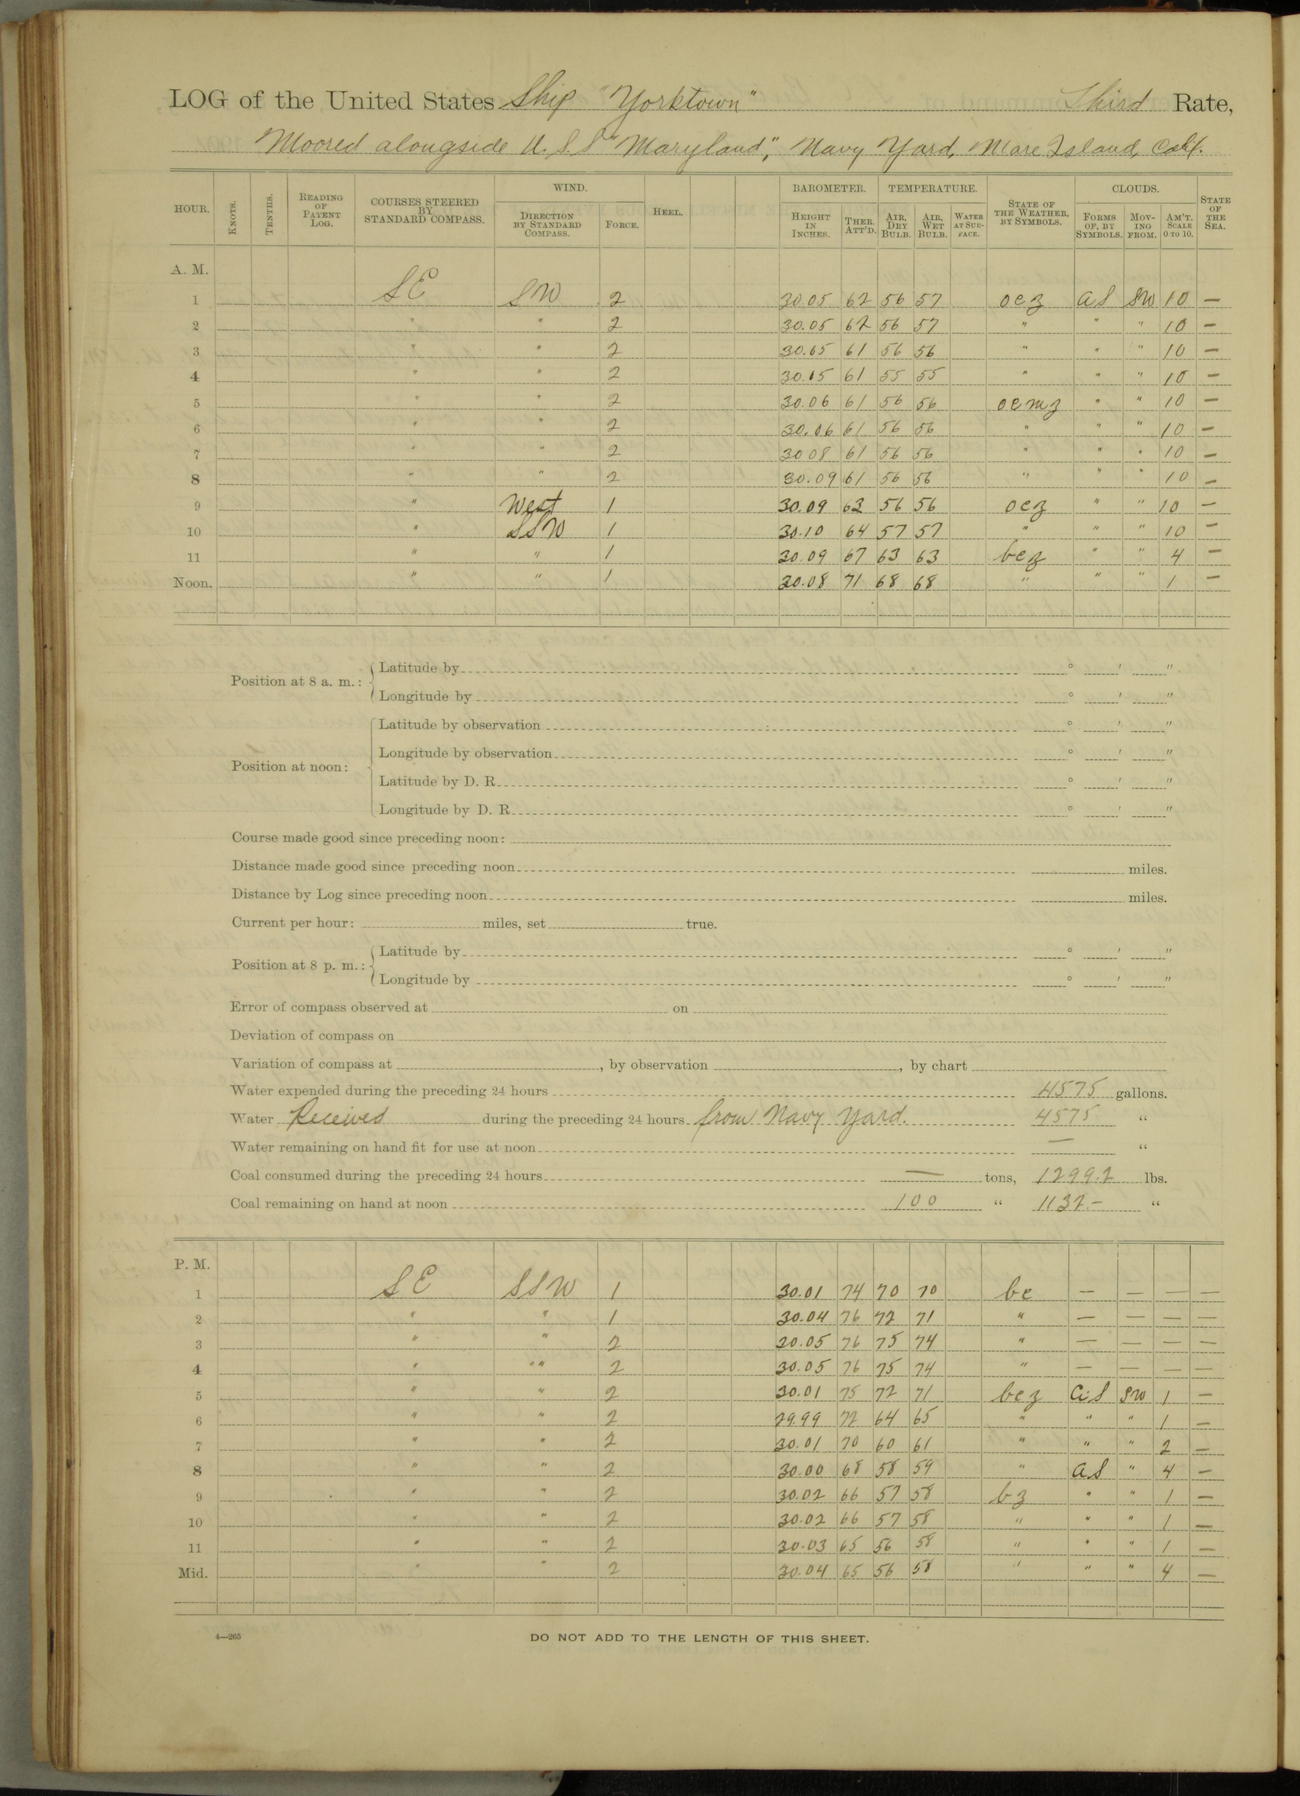 LOG of the United States Ship "Yorktown" Third Rate,
Moored alongside U.S.S. "Maryland", Navy Yard, Mare Island, Calif.
HOUR. KNOTS. TENTHS. READING OF PATENT LOG. COURSES STEERED BY STANDARD COMPASS. WIND. DIRECTION BY STANDARD COMPASS. FORCE. HEEL. BAROMETER. HEIGHT IN INCHES. THER. ATT'D. TEMPERATURE. AIR, DRY BULB. AIR, WET BULB. WATER AT SURFACE. STATE OF THE WEATHER, BY SYMBOLS. CLOUDS. FORMS OF, BY SYMBOLS. MOVING FROM. AM'T. SCALE 0 TO 10. STATE OF THE SEA.
A. M.
1 SE SW 2 30.05 62 56 57 ocz AS SW 10 —
2 " " 2 30.05 62 56 57 " " " 10 —
3 " " 2 30.05 61 56 56 " " " 10 —
4 " " 2 30.05 61 55 55 " " " 10 —
5 " " 2 30.06 61 56 56 ocmz " " 10 —
6 " " 2 30.06 61 56 56 " " " 10 —
7 " " 2 30 08 61 56 56 " " " 10 —
8 " " 2 30.09 61 56 56 " " " 10 —
9 " West 1 30.09 62 56 56 ocz " " 10 —
10 " SSW 1 30.10 64 57 57 " " " 10 —
11 " " 1 30.09 67 63 63 bcz " " 4 —
Noon. " " 1 30.08 71 68 68 " " " 1 —
Position at 8 a. m.: Latitude by ° ' "
Longitude by ° ' "
Position at noon: Latitude by observation ° ' "
Longitude by observation ° ' "
Latitude by D. R. ° ' "
Longitude by D. R. ° ' "
Course made good since preceding noon:
Distance made good since preceding noon miles.
Distance by Log since preceding noon miles.
Current per hour: miles, set true.
Position at 8 p. m.: Latitude by ° ' "
Longitude by ° ' "
Error of compass observed at on
Deviation of compass on
Variation of compass at , by observation , by chart
Water expended during the preceding 24 hours 4575 gallons.
Water Received during the preceding 24 hours from Navy Yard. 4575 "
Water remaining on hand fit for use at noon — "
Coal consumed during the preceding 24 hours — tons, 1299.2 lbs.
Coal remaining on hand at noon 100 " 1132.- "
P. M.
1 SE SSW 1 30.01 74 70 70 bc — — — —
2 " " 1 30.04 76 72 71 " — — — —
3 " " 2 30.05 76 75 74 " — — — —
4 " "" 2 30.05 76 75 74 " — — — —
5 " " 2 30.01 75 72 71 bcz Ci S SW 1 —
6 " " 2 29.99 72 64 65 " " " 1 —
7 " " 2 30.01 70 60 61 " " " 2 —
8 " " 2 30.00 68 58 59 " AS " 4 —
9 " " 2 30.02 66 57 58 bz " " 1 —
10 " " 2 30.02 66 57 58 " " " 1 —
11 " " 2 30.03 65 56 58 " " " 1 —
Mid. " " 2 30.04 65 56 58 " " " 4 —
4—265
DO NOT ADD TO THE LENGTH OF THIS SHEET.